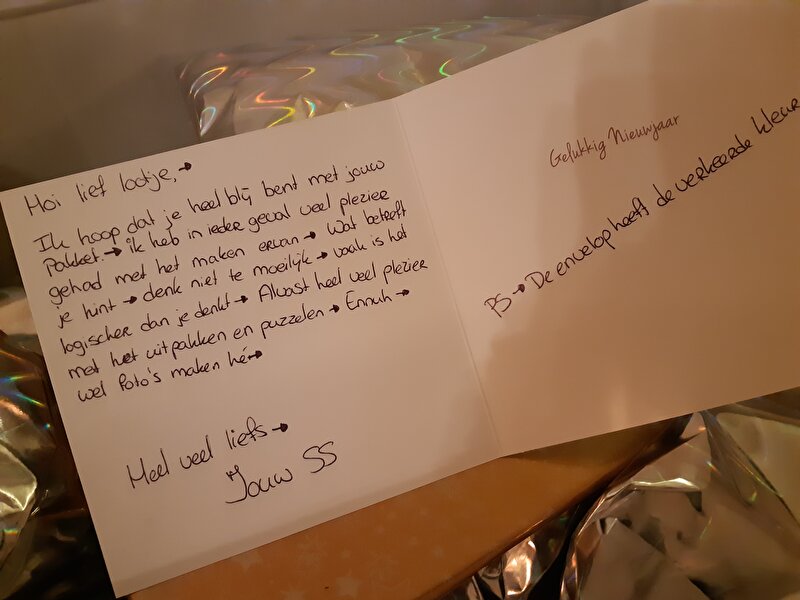 Hoi lief lootje,→
Ik hoop dat je heel blij bent met jouw
Pakket → ik heb in ieder geval veel plezier
gehad met het maken ervan → Wat betreft
je hint → denk niet te moeilijk → vaak is het
logischer dan je denkt → Alvast heel veel plezier
met het uitpakken en puzzelen → Ennuh →
wel foto's maken hé→
Heel veel liefs →
Jouw SS
Gelukkig Nieuwjaar
PS → De envelop heeft de verkeerde kleur